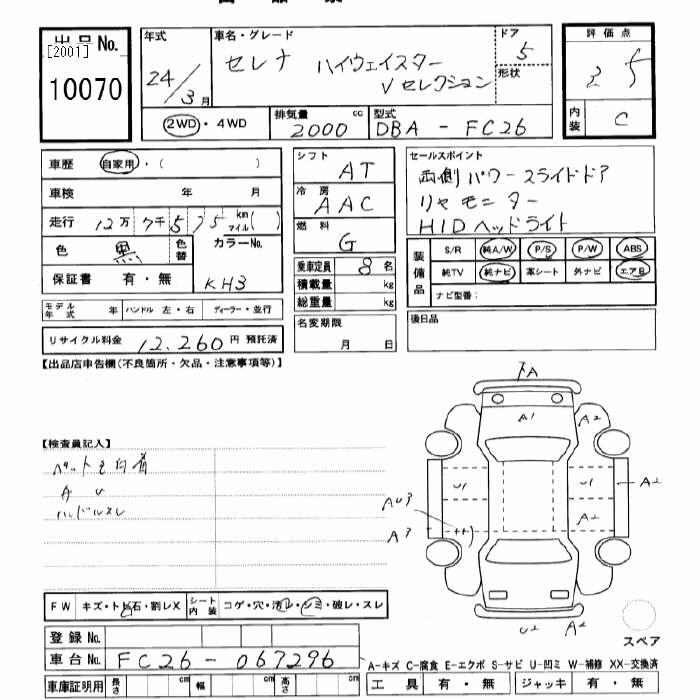 出品No. [2001] 10070
年式 24/3月
車名・グレード セレナ ハイウェイスター Vセレクション
ドア 5
形状
評価点 3.5
内装 C
2WD・4WD
排気量 2000 cc
型式 DBA-FC26
車歴 自家用・( )
車検 年 月
走行 12万7千575 km マイル( )
色 黒 色替
カラーNo. KH3
保証書 有・無
モデル年式 年 ハンドル 左・右 ディーラー・並行
リサイクル料金 12,260円 預託済
シフト AT
冷房 AAC
燃料 G
乗車定員 8名
積載量 kg
総重量 kg
名変期限 月 日
セールスポイント
両側パワースライドドア
リヤモニター
HIDヘッドライト
装備品 S/R 純A/W P/S P/W ABS
純TV 純ナビ 革シート 外ナビ エアB
ナビ型番:
後日品
【出品店申告欄(不良箇所・欠品・注意事項等)】
【検査員記入】
ハンドルスレ
A1 A2 U1 U1 A2 A2
AU3 A3
U2 A2
スペア
FW キズ・トビ石・割レX
シート内装 コゲ・穴・汚レ・シミ・破レ・スレ
登録No.
車台No. FC26-067296
車庫証明用 長さ cm 幅 cm 高さ cm
A-キズ C-腐食 E-エクボ S-サビ U-凹ミ W-補修 XX-交換済
工具 有・無 ジャッキ 有・無